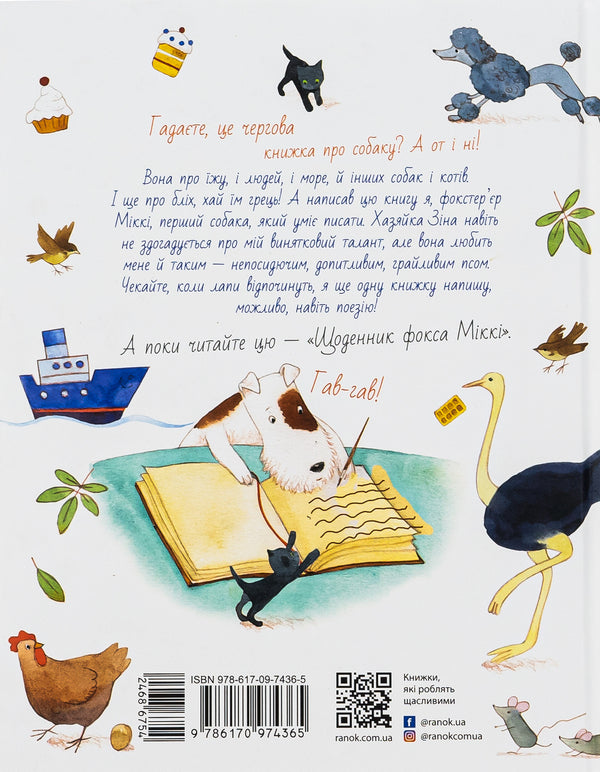 Гадаєте, це чергова
книжка про собаку? А от і ні!
Вона про їжу, і людей, і море, й інших собак і котів.
І ще про бліх, хай їм грець! А написав цю книгу я, фокстер'єр
Міккі, перший собака, який уміє писати. Хазяйка Зіна навіть
не здогадується про мій винятковий талант, але вона любить
мене й таким — непосидючим, допитливим, грайливим псом.
Чекайте, коли лапи відпочинуть, я ще одну книжку напишу,
можливо, навіть поезію!
А поки читайте цю — «Щоденник фокса Міккі».
Гав-гав!
ISBN 978-617-09-7436-5
9 786170 974365
ranok.com.ua
Книжки,
які роблять
щасливими
@ranok.ua
@ranokcomua